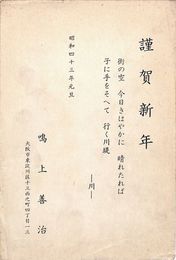 謹賀新年
街の空 今日きはやかに 晴れたれば
子に手をそへて 行く川堤
―川―
昭和四十三年元旦
鳴上善治
大阪市東淀川区十三西之町四丁目一三